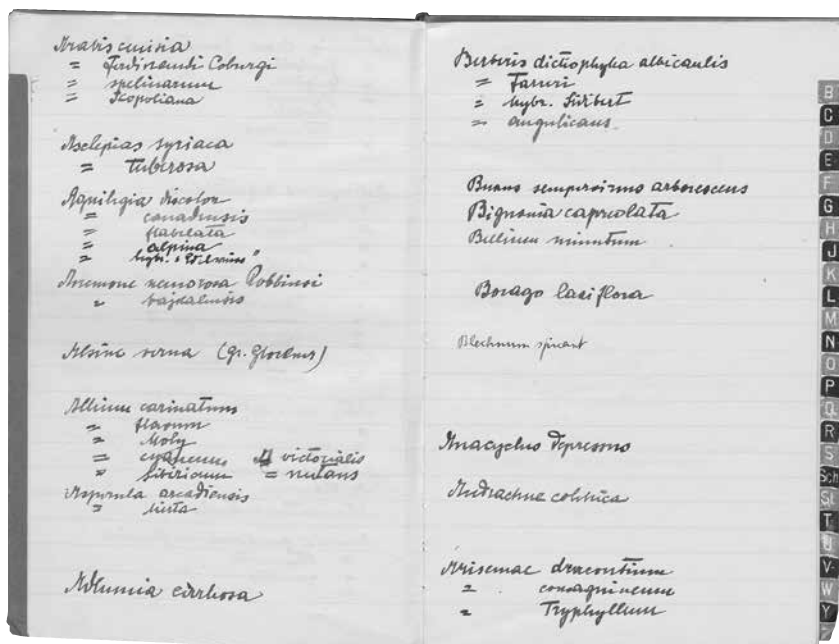 Arabis cenisia
= Ferdinandi Coburgi
= spelinarum
= Scopoliana
Asclepias syriaca
= tuberosa
Aquiligia discolor
= canadensis
= flabelata
= alpina
= hybr. "Edelweiss"
Anemone nemorosa Robbinsi
" bajkalensis
Alsine verna
Allium carinatum
= flavum
= Moly
= cyaneum victorialis
" sibiricum = nutans
Asperula arcadiensis
= hirta
Adlumia cirrhosa
Berberis dictiophyla albicaulis
= Fareri
= hybr.
=
Buxus arborescens
Bignonia capreolata
Bellium minutum
Borago laxiflora
Blechnum spicant
Anacyclus depressus
Andrachne colchica
Arisemae dracontium
= consaguineum
= Tryphyllum
B
C
D
E
F
G
H
J
K
L
M
N
O
P
Q
R
S
Sch
St
T
U
V
W
Y